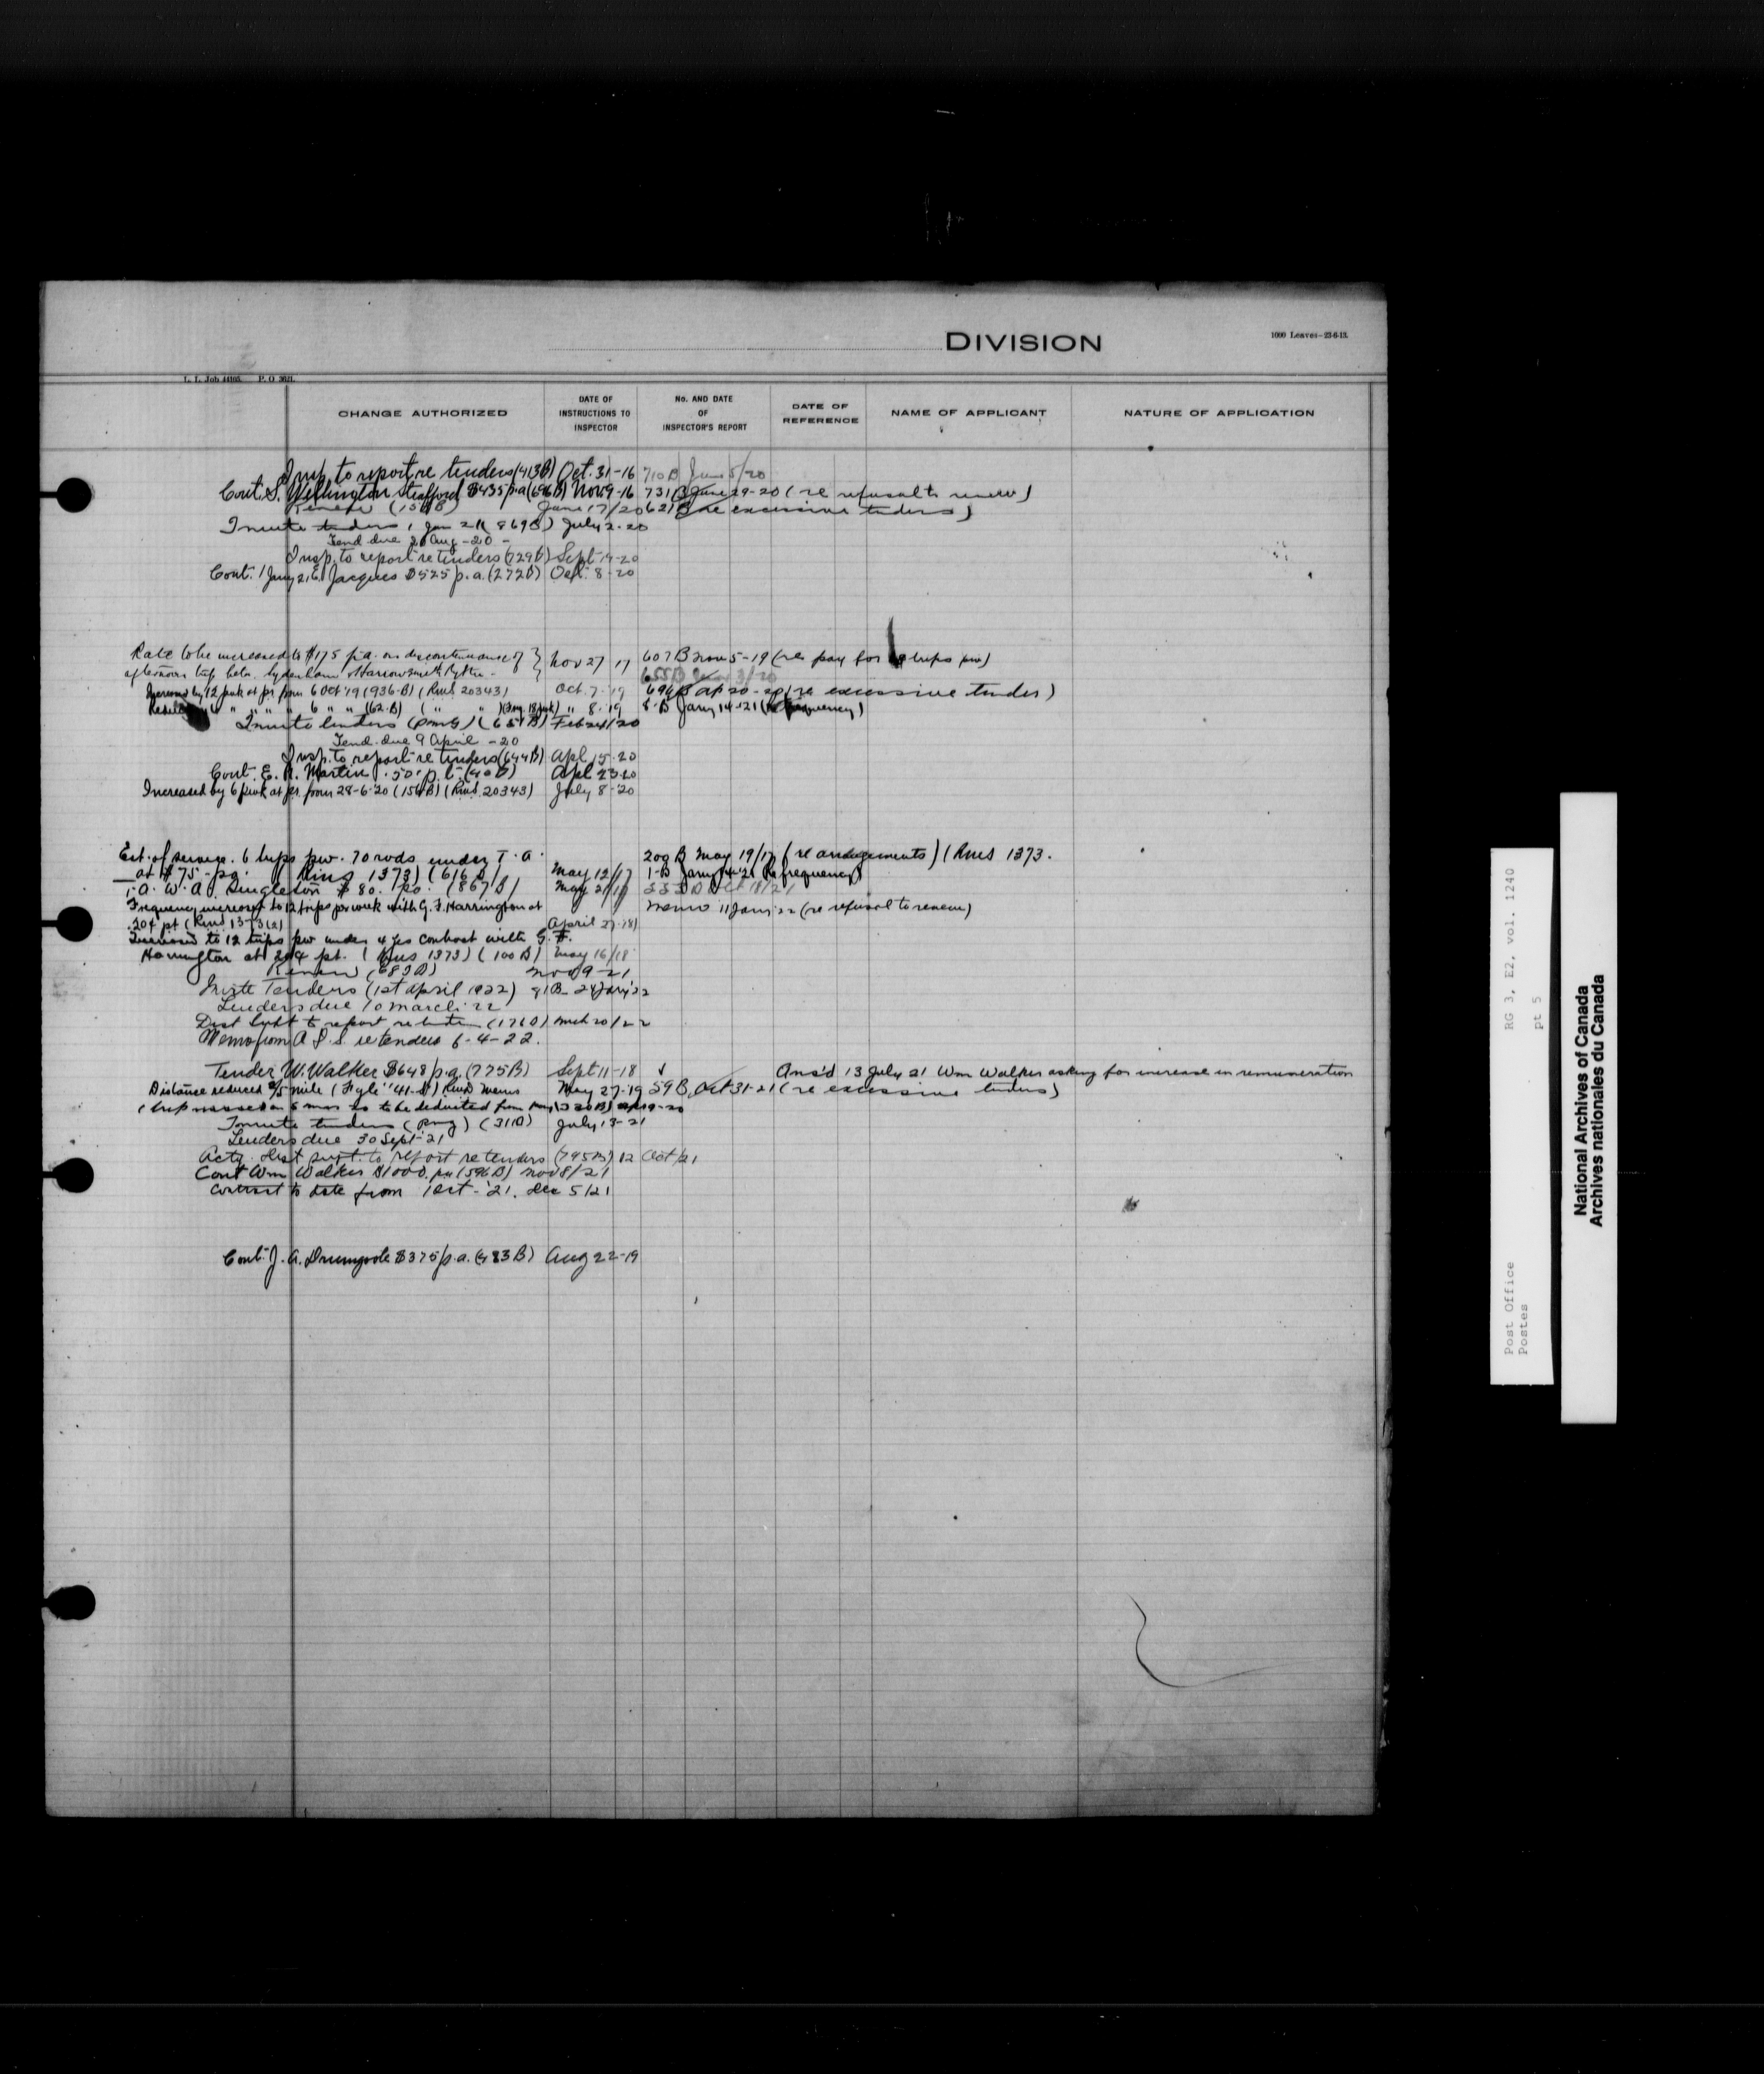 DIVISION
1000 Leaves-23-6-13.
L. I. Job 44165. P. O 3621.
CHANGE AUTHORIZED
DATE OF INSTRUCTIONS TO INSPECTOR
No. AND DATE OF INSPECTOR'S REPORT
DATE OF REFERENCE
NAME OF APPLICANT
NATURE OF APPLICATION
Insp. to report re tenders (413B) Oct. 31-16 710 B June 5/20
Cont. S. Wellington Strafford $435 p.a. (696B) Nov 9-16 731 B June 29-20 (re refusal to renew)
Renew (156B) June 17/20 621 B (re excessive tenders)
Invite tenders (Jan 21 869B) July 2-20
Tend. due 20 Aug-20-
Insp. to report re tenders (729B) Sept 14-20
Cont. 1 Jany 21, E. Jacques $525 p.a. (272B) Oct. 8-20
Rate to be increased to $175 p.a. on discontinuance of } Nov 27 17 607 B Nov 5-19 (re pay for trips pw)
afternoon trip betn. Sydenham Harrowsmith Ry Stn. - 655B 3/20
Increased by 12 pwk at pr. from 6 Oct '19 (936-B) (Rms 20343) Oct. 7-'19 694 B Ap 20-20 (re excessive tender)
" " " " 6 " " (62-B) ( " " ) " 8-19 8-B Jany 14-'21 (re frequency)
Invite tenders (PMG) (651B) Feb 24/20
Tend. due 9 April -20
Insp. to report re tenders (644B) Apl 15-20
Cont. E. R. Martin .50 p.t. (40B) Apl 23-20
Increased by 6 pwk at pr. from 28-6-20 (154B) (Rms 20343) July 8-'20
Est. of service. 6 trips pw. 70 rods under T. A. 209 B May 19/17 (re arrangements) (Rms 1373.
at $75- pa. (Rms 1373) (616B) May 12/17 1-B Jany 14-'21 (Re frequency)
T. A. W. A. Singleton $80. pa. (867B) May 21/17
Frequency increased to 12 trips per week with G. F. Harrington at Memo 11 Jany '22 (re refusal to renew)
.20¢ pt (Rms 1373) (2) April 27-18
Increased to 12 trips pw under 4 yrs contract with G. F.
Harrington at 20¢ pt. (Rms 1373) (100B) May 16/18
Renew (683B) Nov 9-21
Invite Tenders (1st April 1922) 91B- 24 Jany '22
Tenders due 10 March '22
Dist Supt to report re tenders (176B) Mch 20/22
Memo from A D. S. re tenders 6-4-22.
Tender W. Walker $648 p.a. (775B) Sept 11-18 Ans'd 13 July 21 Wm Walker asking for increase in remuneration
Distance reduced 2/5 mile (Fyle "41-S") Rms Memo May 27-'19 59 B, Oct 31-21 (re excessive tenders)
Invite tenders (PMG) (311B) July 13-21
Tenders due 30 Sept '21
Actg. Dist Supt. to report re tenders (795B) 12 Oct/21
Cont Wm Walker $1000. pa (596B) Nov 8/21
Contract to date from 1 Oct-'21. Dec 5/21
Cont. J. A. Drumgoole $375 p.a. (483B) Aug 22-19
Post Office RG 3, E2, vol. 1240
Postes pt 5
National Archives of Canada
Archives nationales du Canada